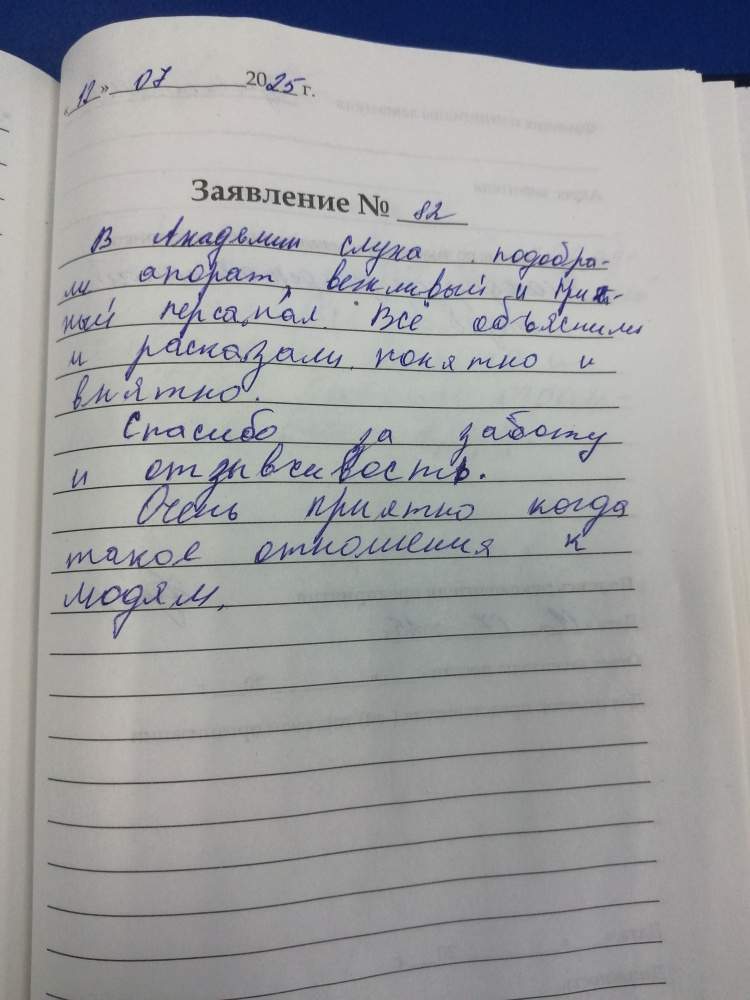 «12» 07 2025 г.
Заявление № 82
В Академии слуха подобра-
ли апорат, вежливый и
ный персанал. Всё объяснили
и расказали понятно и
внятно.
Спасибо за заботу
и отзывчивость.
Очень приятно когда
такое отношения к
людям.